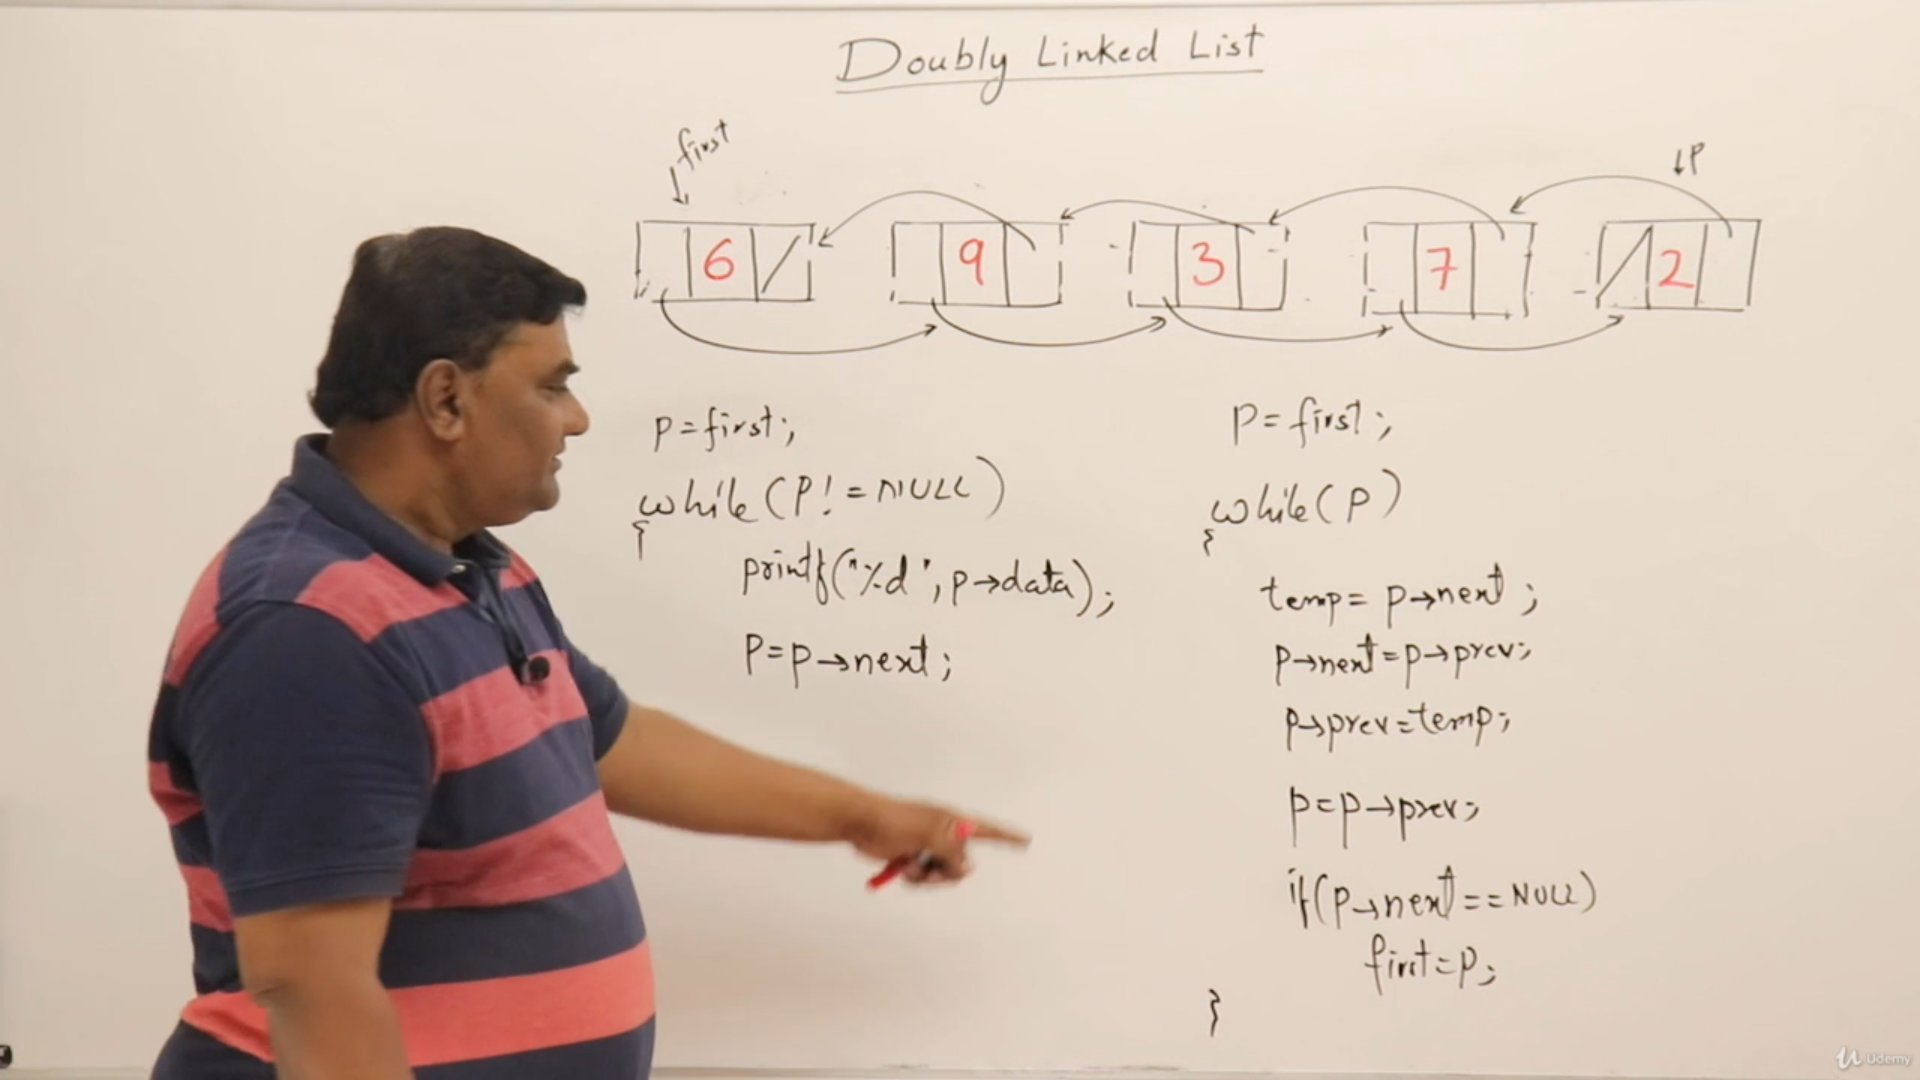 Doubly Linked List
first
↓P
6 9 3 7 2
P=first;
while(P!=NULL)
{
printf("%d",p→data);
P=p→next;
P=first;
while(P)
{
temp=p→next;
p→next=p→prev;
p→prev=temp;
p=p→prev;
if(p→next==NULL)
first=p;
}
Udemy